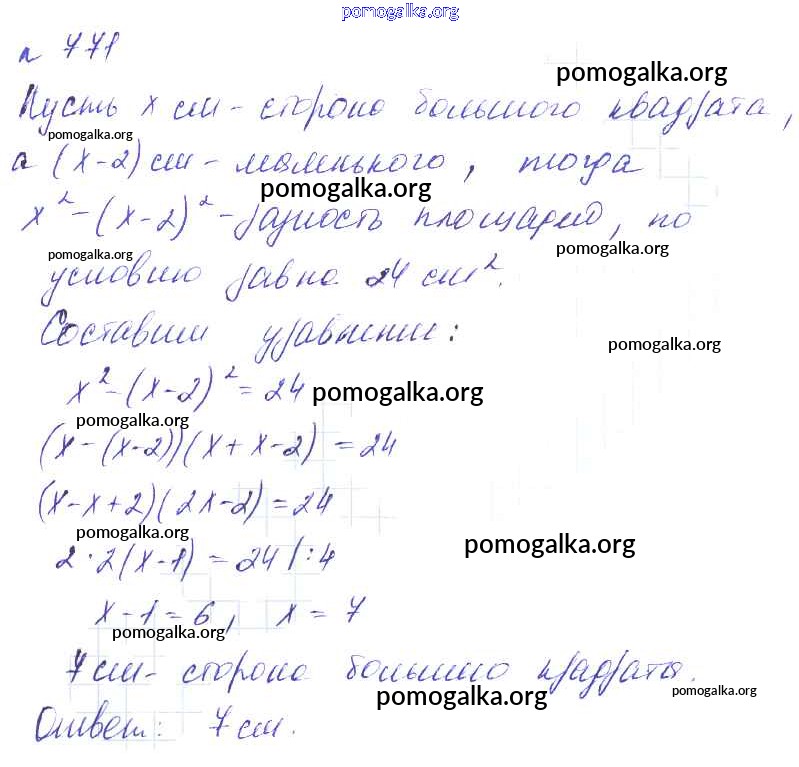 pomogalka.org
№ 771
pomogalka.org
Пусть x см - сторона большого квадрата,
pomogalka.org
а (x-2) см - маленького, тогда
pomogalka.org
x² - (x-2)² - разность площадей, по
pomogalka.org pomogalka.org
условию равна 24 см².
Составим уравнение:
pomogalka.org
x² - (x-2)² = 24 pomogalka.org
pomogalka.org
(x - (x-2))(x + x - 2) = 24
(x - x + 2)(2x - 2) = 24
pomogalka.org pomogalka.org
2 · 2(x-1) = 24 | : 4
x - 1 = 6, x = 7
pomogalka.org
7 см - сторона большего квадрата.
pomogalka.org pomogalka.org
Ответ: 7 см.